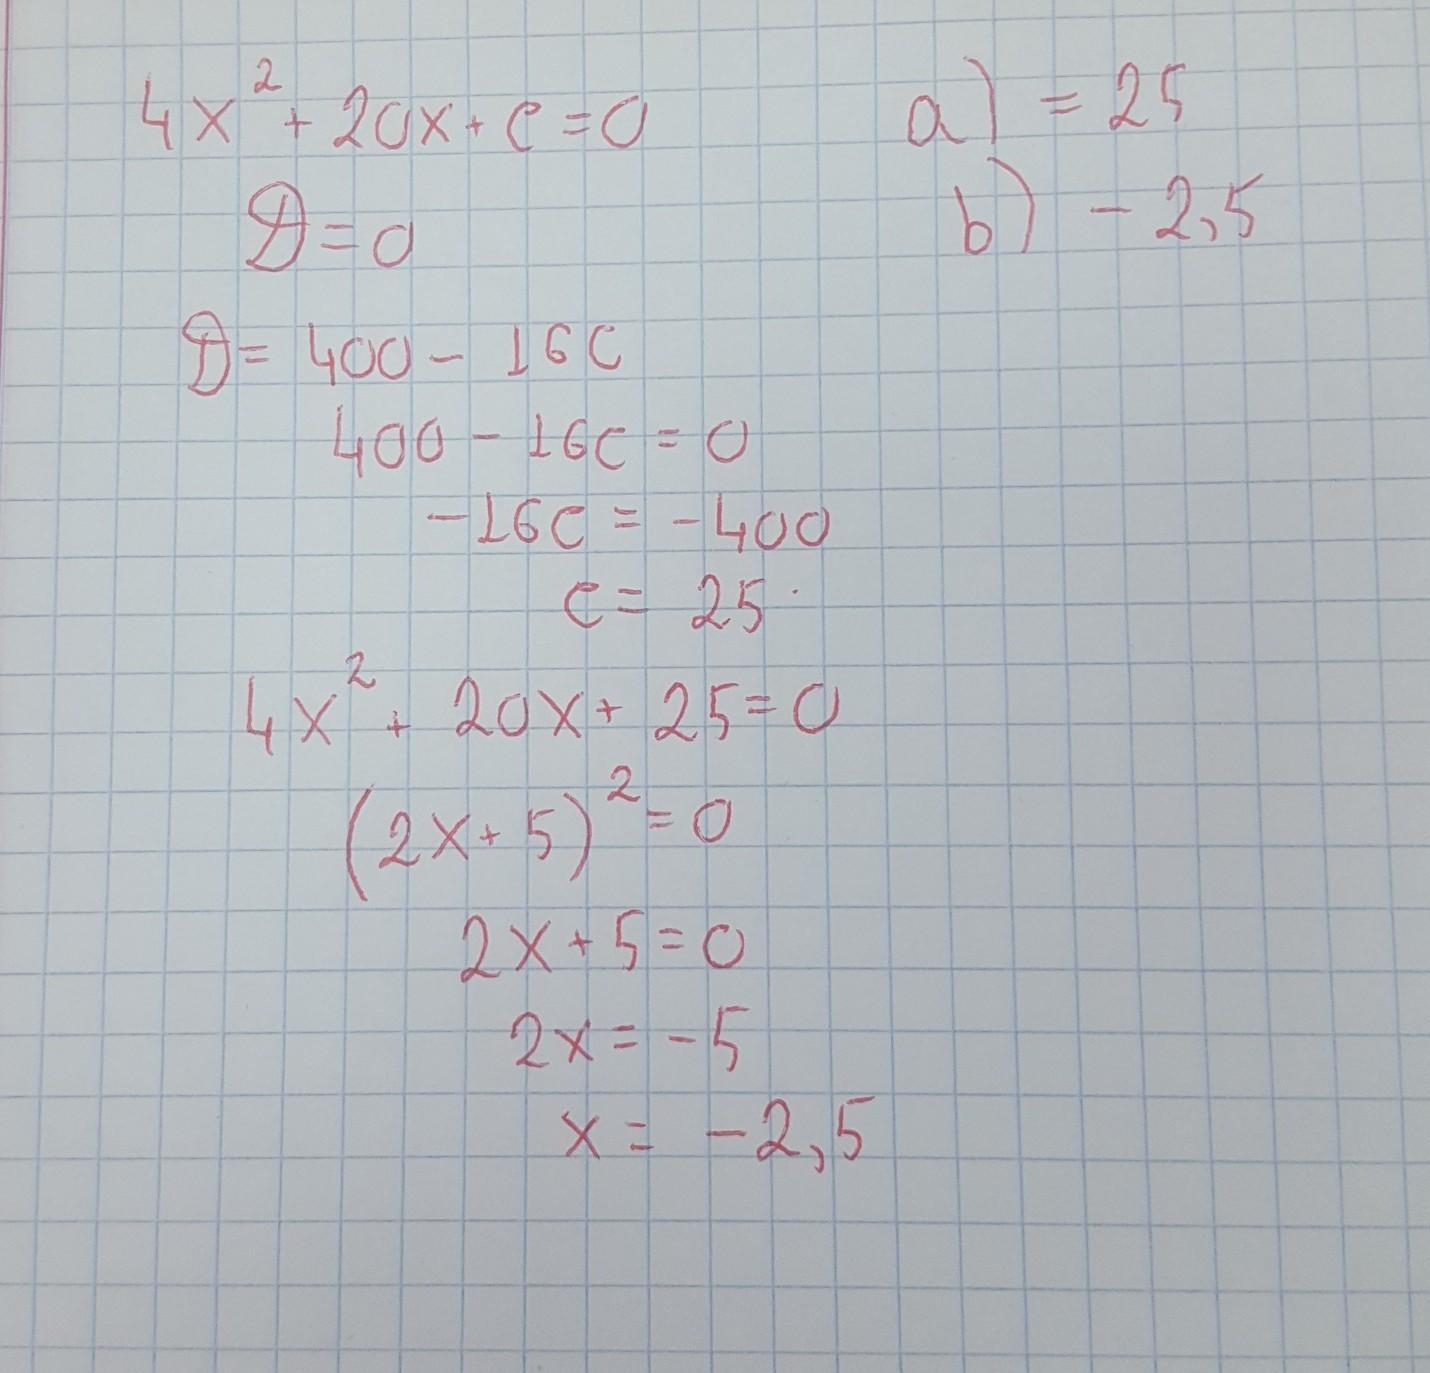 4x² + 20x + c = 0
D = 0
D = 400 - 16c
400 - 16c = 0
-16c = -400
c = 25
4x² + 20x + 25 = 0
(2x + 5)² = 0
2x + 5 = 0
2x = -5
x = -2,5
a) = 25
b) -2,5